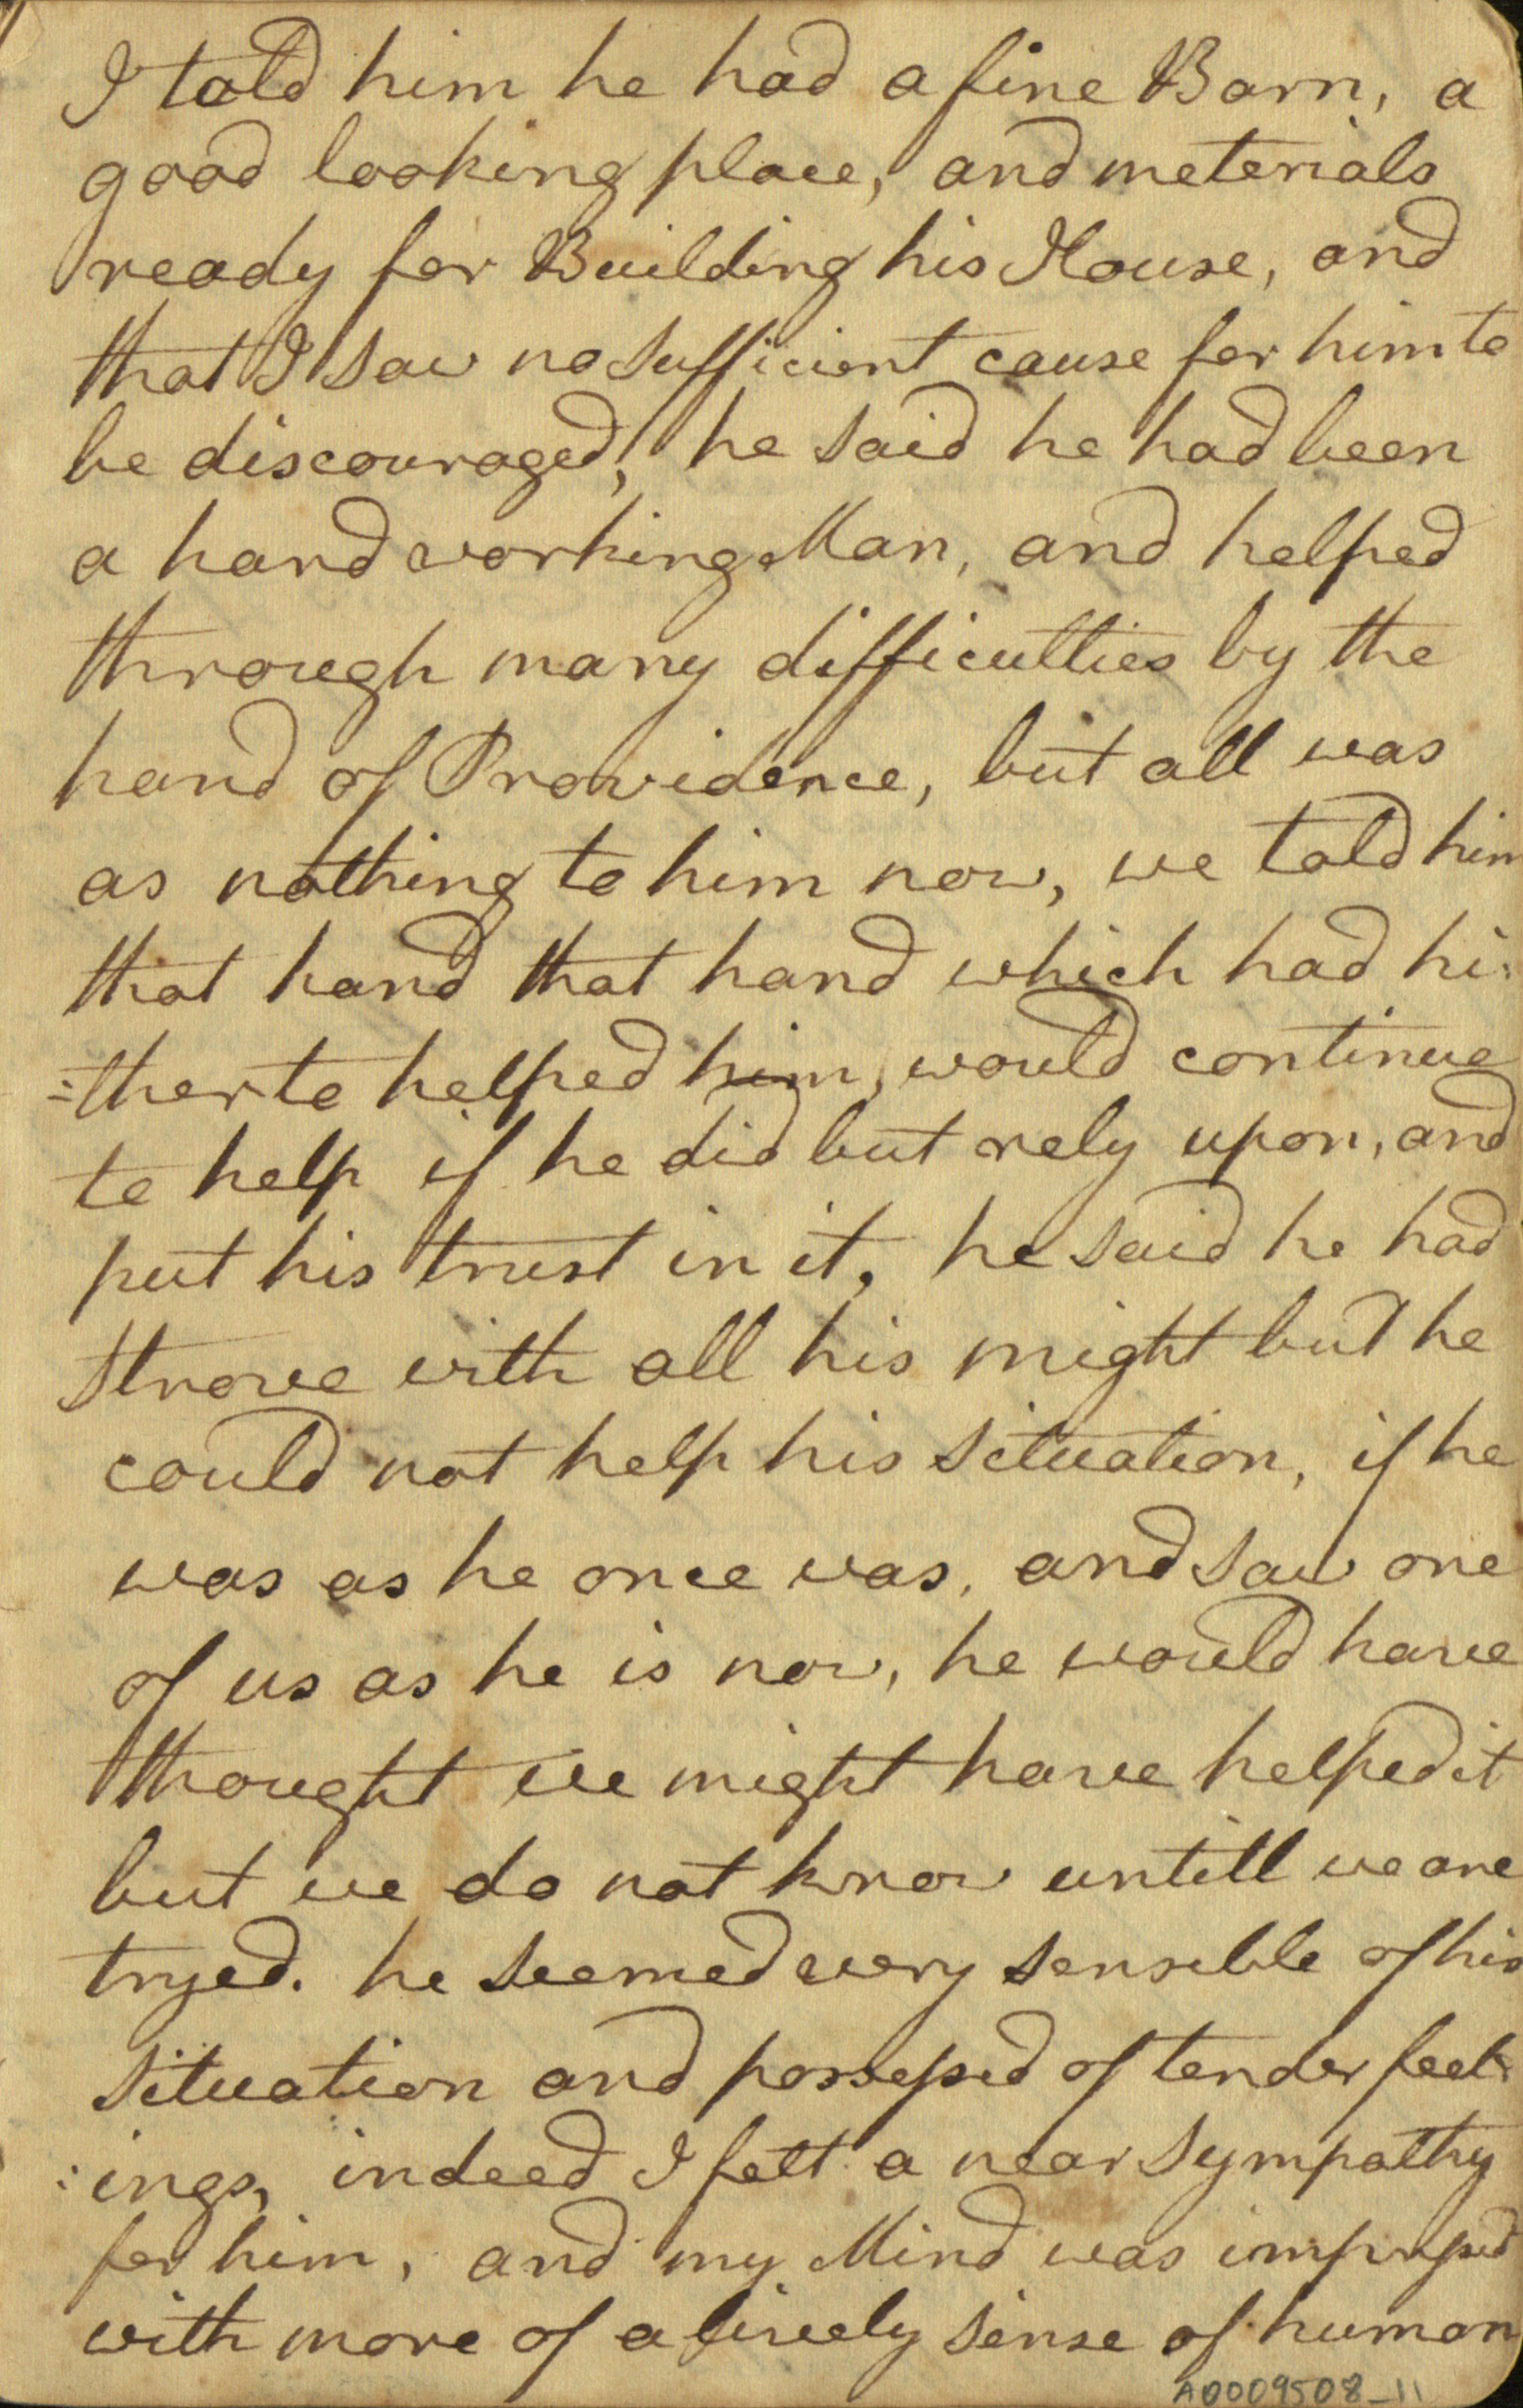 I told him he had a fine Barn, a
good looking place, and meterials
ready for Building his House, and
that I saw no sufficient cause for him to
be discouraged, he said he had been
a hard working Man, and helped
through many difficulties by the
hand of Providence, but all was
as nothing to him now, we told him
that hand that hand which had hi:
:therto helped him, would continue
to help if he did but rely upon, and
put his trust in it, he said he had
strove with all his might but he
could not help his situation, if he
was as he once was, and saw one
of us as he is now, he would have
thought we might have helped it
but we do not know untill we are
tryed. he seemed very sensible of his
situation and possessed of tender feel:
:ings, indeed I felt a near sympathy
for him, and my Mind was impressed
with more of a lively sense of human
A0009508_11